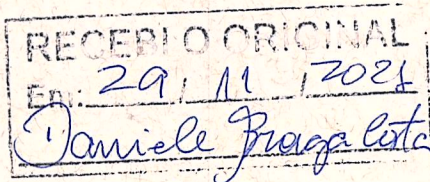 RECEBI O ORIGINAL
Em: 29 / 11 / 2021
Daniele Braga Costa